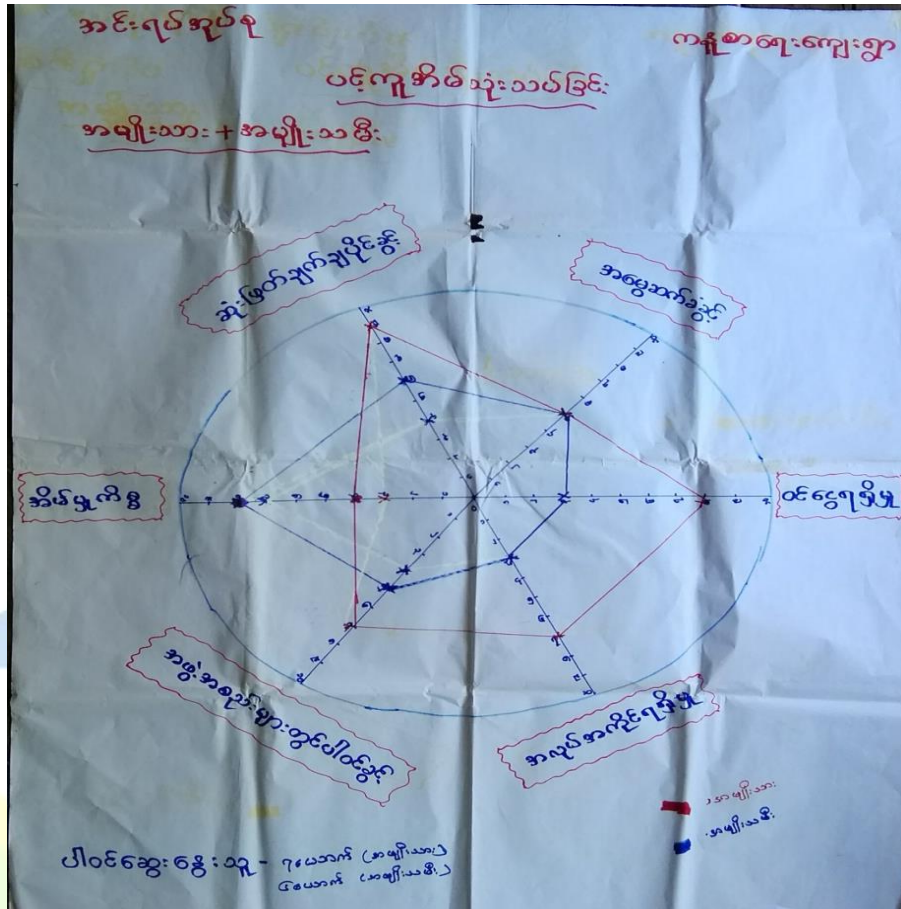 အင်းရပ်အုပ်စု
ကနူစာရေးကျေးရွာ
ပင့်ကူအိမ်သုံးသပ်ခြင်း
အမျိုးသား + အမျိုးသမီး
ဆုံးဖြတ်ချက်ချပိုင်ခွင့်
အမွေဆက်ခံခွင့်
အိမ်မှုကိစ္စ
ဝင်ငွေရရှိမှု
အဖွဲ့အစည်းများတွင်ပါဝင်ခွင့်
အလုပ်အကိုင်ရရှိမှု
အမျိုးသား
အမျိုးသမီး
ပါဝင်ဆွေးနွေးသူ - ၇ယောက် (အမျိုးသား)
၄ယောက် (အမျိုးသမီး)